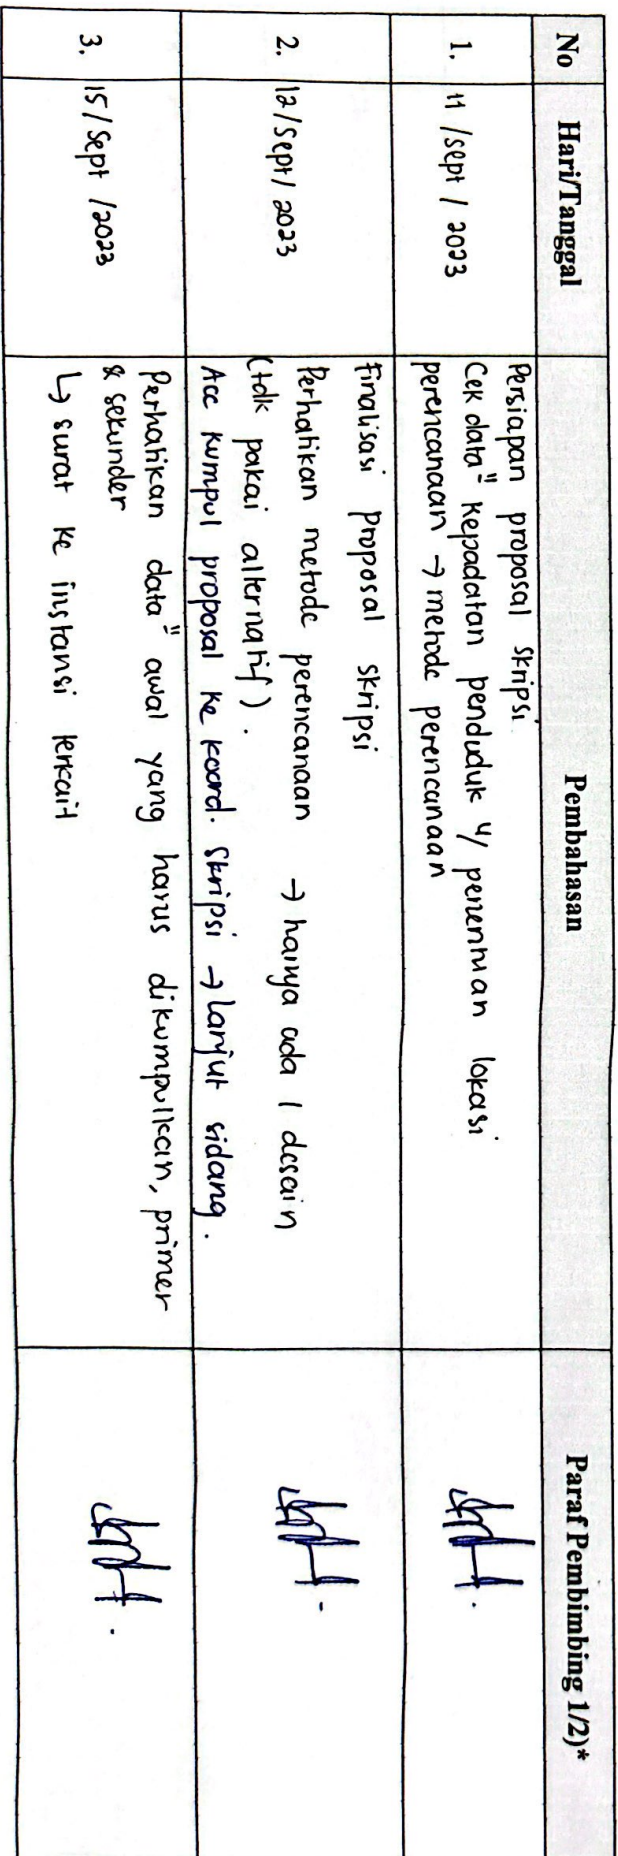 No Hari/Tanggal Pembahasan Paraf Pembimbing 1/2)*
1. 11/Sept/2023 Persiapan proposal skripsi
Cek data" kepadatan penduduk u/ penentuan lokasi
perencanaan → metode perencanaan
2. 12/Sept/2023 Finalisasi proposal skripsi
Perhatikan metode perencanaan → hanya ada 1 desain
(tdk pakai alternatif).
Acc kumpul proposal ke koord. Skripsi → Lanjut sidang.
3. 15/Sept/2023 Perhatikan data" awal yang harus dikumpulkan, primer
& sekunder
↳ surat ke instansi terkait